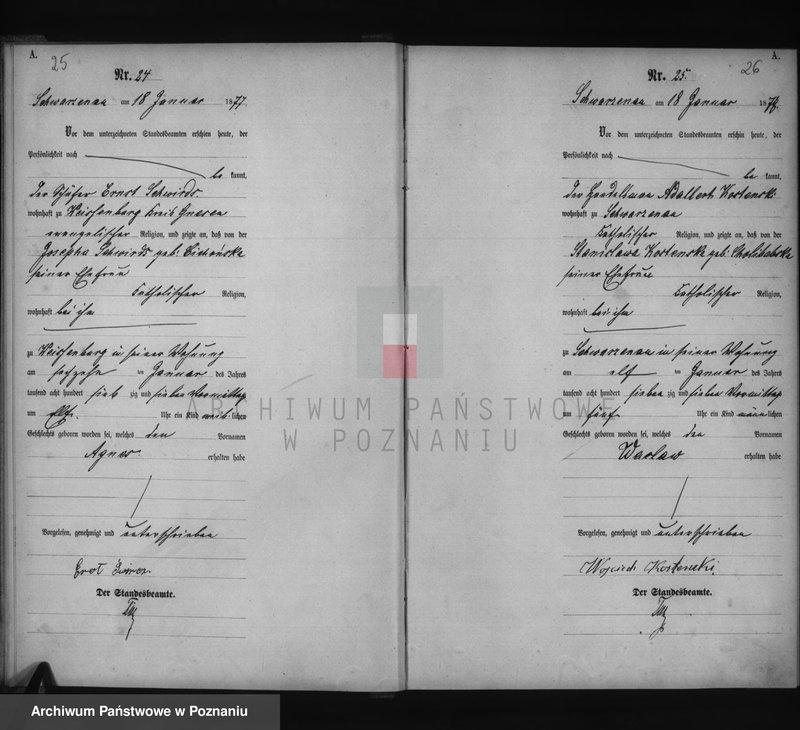 A.
25
Nr. 24
Schwarzenau am 18 Januar 1877
Vor dem unterzeichneten Standesbeamten erschien heute, der
Persönlichkeit nach
bekannt,
der Schäfer Ernst Schwirds
wohnhaft zu Weissenberg Kreis Gnesen
evangelischer Religion, und zeigte an, daß von der
Josepha Schwirds geb:
seiner Ehefrau
katholischer Religion,
wohnhaft bei ihm
zu Weissenberg in seiner Wohnung
am sechzehn ten Januar des Jahres
tausend acht hundert siebzig und sieben Vormittag
um elf Uhr ein Kind weiblichen
Geschlechts geboren worden sei, welches den Vornamen
Agnes erhalten habe
Vorgelesen, genehmigt und unterschrieben
Der Standesbeamte.
A.
26
Nr. 25.
Schwarzenau am 18 Januar 1877.
Vor dem unterzeichneten Standesbeamten erschien heute, der
Persönlichkeit nach
bekannt,
der Handelsman Adalbert Kostenski
wohnhaft zu Schwarzenau
katholischer Religion, und zeigte an, daß von der
Stanislawa Kostenska geb:
seiner Ehefrau
katholischer Religion,
wohnhaft bei ihm
zu Schwarzenau in seiner Wohnung
am elf ten Januar des Jahres
tausend acht hundert siebenzig und sieben Vormittag
um fünf Uhr ein Kind männlichen
Geschlechts geboren worden sei, welches den Vornamen
Waclaw erhalten habe
Vorgelesen, genehmigt und unterschrieben
Wojciech Kostenski
Der Standesbeamte.
ARCHIWUM PAŃSTWOWE
W POZNANIU
Archiwum Państwowe w Poznaniu